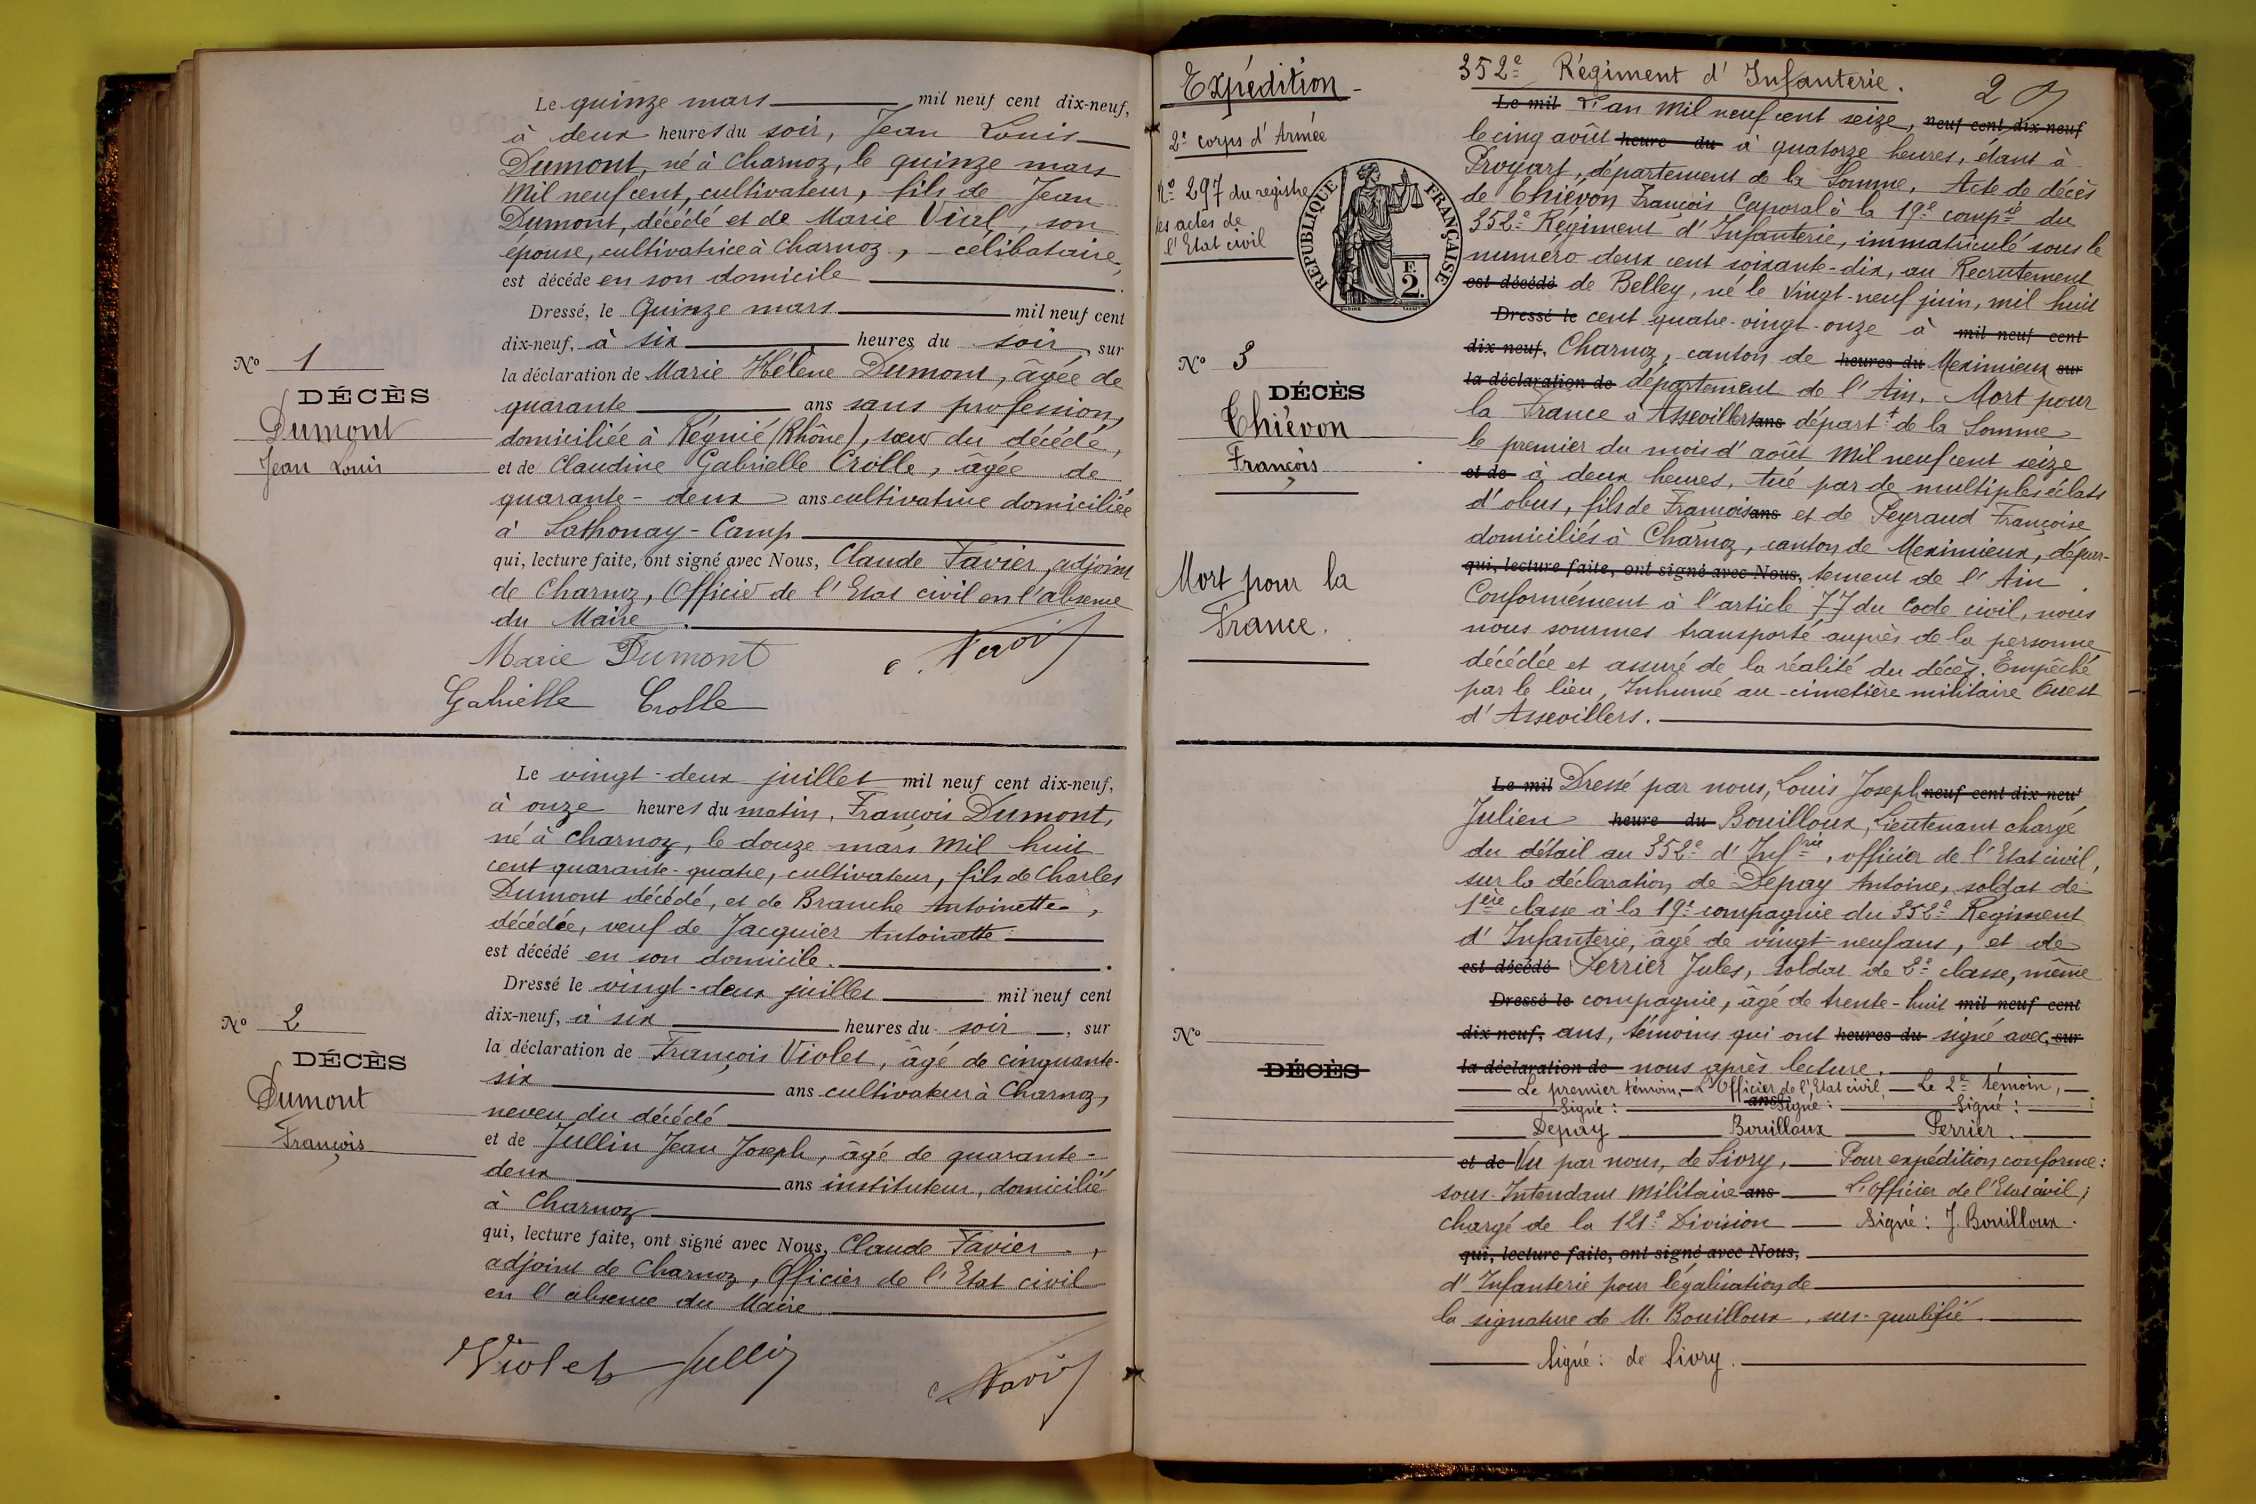 Le quinze mars mil neuf cent dix-neuf,
à deux heures du soir, Jean Louis
Dumont, né à Charnoz, le quinze mars
mil neuf cent, cultivateur, fils de Jean
Dumont, décédé et de Marie Vial, son
épouse, cultivatrice à Charnoz, - célibataire,
est décédé en son domicile
Dressé, le Quinze mars mil neuf cent
dix-neuf, à six heures du soir, sur
la déclaration de Marie Hélène Dumont, âgée de
quarante ans sans profession,
domiciliée à Régnié (Rhône), sœur du décédé,
et de Claudine Gabrielle Crolle, âgée de
quarante-deux ans cultivatrice domiciliée
à Sathonay-Camp
qui, lecture faite, ont signé avec Nous, Claude Favier, adjoint
de Charnoz, Officier de l'Etat civil en l'absence
du Maire.
Marie Dumont
Gabrielle Crolle
No 1
DÉCÈS
Dumont
Jean Louis
Le vingt-deux juillet mil neuf cent dix-neuf,
à onze heures du matin, François Dumont,
né à Charnoz, le douze mars mil huit
cent quarante-quatre, cultivateur, fils de Charles
Dumont décédé, et de Branche Antoinette,
décédée, veuf de Jacquier Antoinette
est décédé en son domicile.
Dressé le vingt-deux juillet mil neuf cent
dix-neuf, à six heures du soir, sur
la déclaration de François Violet, âgé de cinquante-
six ans cultivateur à Charnoz,
neveu du décédé
et de Jullin Jean Joseph, âgé de quarante-
deux ans instituteur, domicilié
à Charnoz
qui, lecture faite, ont signé avec Nous, Claude Favier,
adjoint de Charnoz, Officier de l'Etat civil
en l'absence du Maire
Violet Jullin
No 2
DÉCÈS
Dumont
François
Expédition
2e corps d'Armée
No 297 du registre
des actes de
l'Etat civil
REPUBLIQUE FRANÇAISE
E
2.
No 3
DÉCÈS
Thiévon
François
Mort pour la
France.
352e Régiment d'Infanterie.
2
Le mil L'an mil neuf cent seize, neuf cent dix-neuf
le cinq août heure du à quatorze heures, étant à
Proyart, département de la Somme. Acte de décès
de Thiévon François Caporal à la 19e compie du
352e Régiment d'Infanterie, immatriculé sous le
numéro deux cent soixante-dix, au Recrutement
est décédé de Belley, né le vingt-neuf juin, mil huit
Dressé le cent quatre-vingt-onze à mil neuf cent
dix-neuf, Charnoz, canton de heures du Meximieux sur
la déclaration de département de l'Ain. Mort pour
la France à Assevillers ans départt de la Somme
le premier du mois d'août mil neuf cent seize
et de à deux heures, tué par de multiples éclats
d'obus, fils de François ans et de Peyraud Françoise
domiciliés à Charnoz, canton de Meximieux, dépar-
qui, lecture faite, ont signé avec Nous, tement de l'Ain
Conformément à l'article 77 du Code civil, nous
nous sommes transporté auprès de la personne
décédée et assuré de la réalité du décès. Empêché
par le lieu, Inhumé au cimetière militaire Ouest
d'Assevillers.
Le mil Dressé par nous, Louis Joseph neuf cent dix-neuf
Julien heure du Bouilloux, Lieutenant chargé
du détail au 352e d'Infrie, officier de l'Etat civil,
sur la déclaration de Depay Antoine, soldat de
1ère classe à la 19e compagnie du 352e Régiment
d'Infanterie, âgé de vingt-neuf ans, et de
est décédé Perrier Jules, soldat de 2e classe, même
Dressé le compagnie, âgé de trente-huit mil neuf cent
dix-neuf, ans, témoins qui ont heures du signé avec, sur
la déclaration de nous après lecture.
Le premier témoin, - L'Officier de l'Etat civil, - Le 2e témoin,
Signé: ans Signé: Signé:
Depay Bouilloux Perrier.
et de Vu par nous, de Sivry, Pour expédition conforme:
sous-Intendant Militaire ans L'Officier de l'Etat civil;
chargé de la 121e Division Signé: J. Bouilloux.
qui, lecture faite, ont signé avec Nous,
d'Infanterie pour légalisation de
la signature de M. Bouilloux, sus-qualifié.
Signé: de Sivry.
No
DÉCÈS